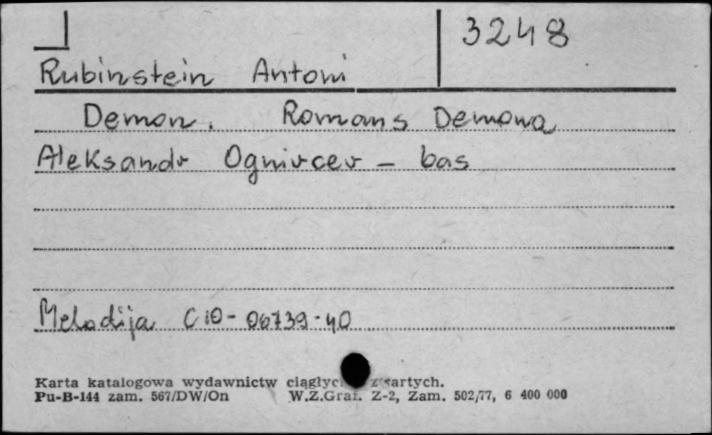 3248
Rubinstein Antoni
Demon. Romans Demona
Aleksandr Ognivcev - bas
Melodija C10-06739-40
Karta katalogowa wydawnictw ciągłych zwartych.
Pu-B-144 zam. 567/DW/On W.Z.Graf. Z-2, Zam. 502/77, 6 400 000